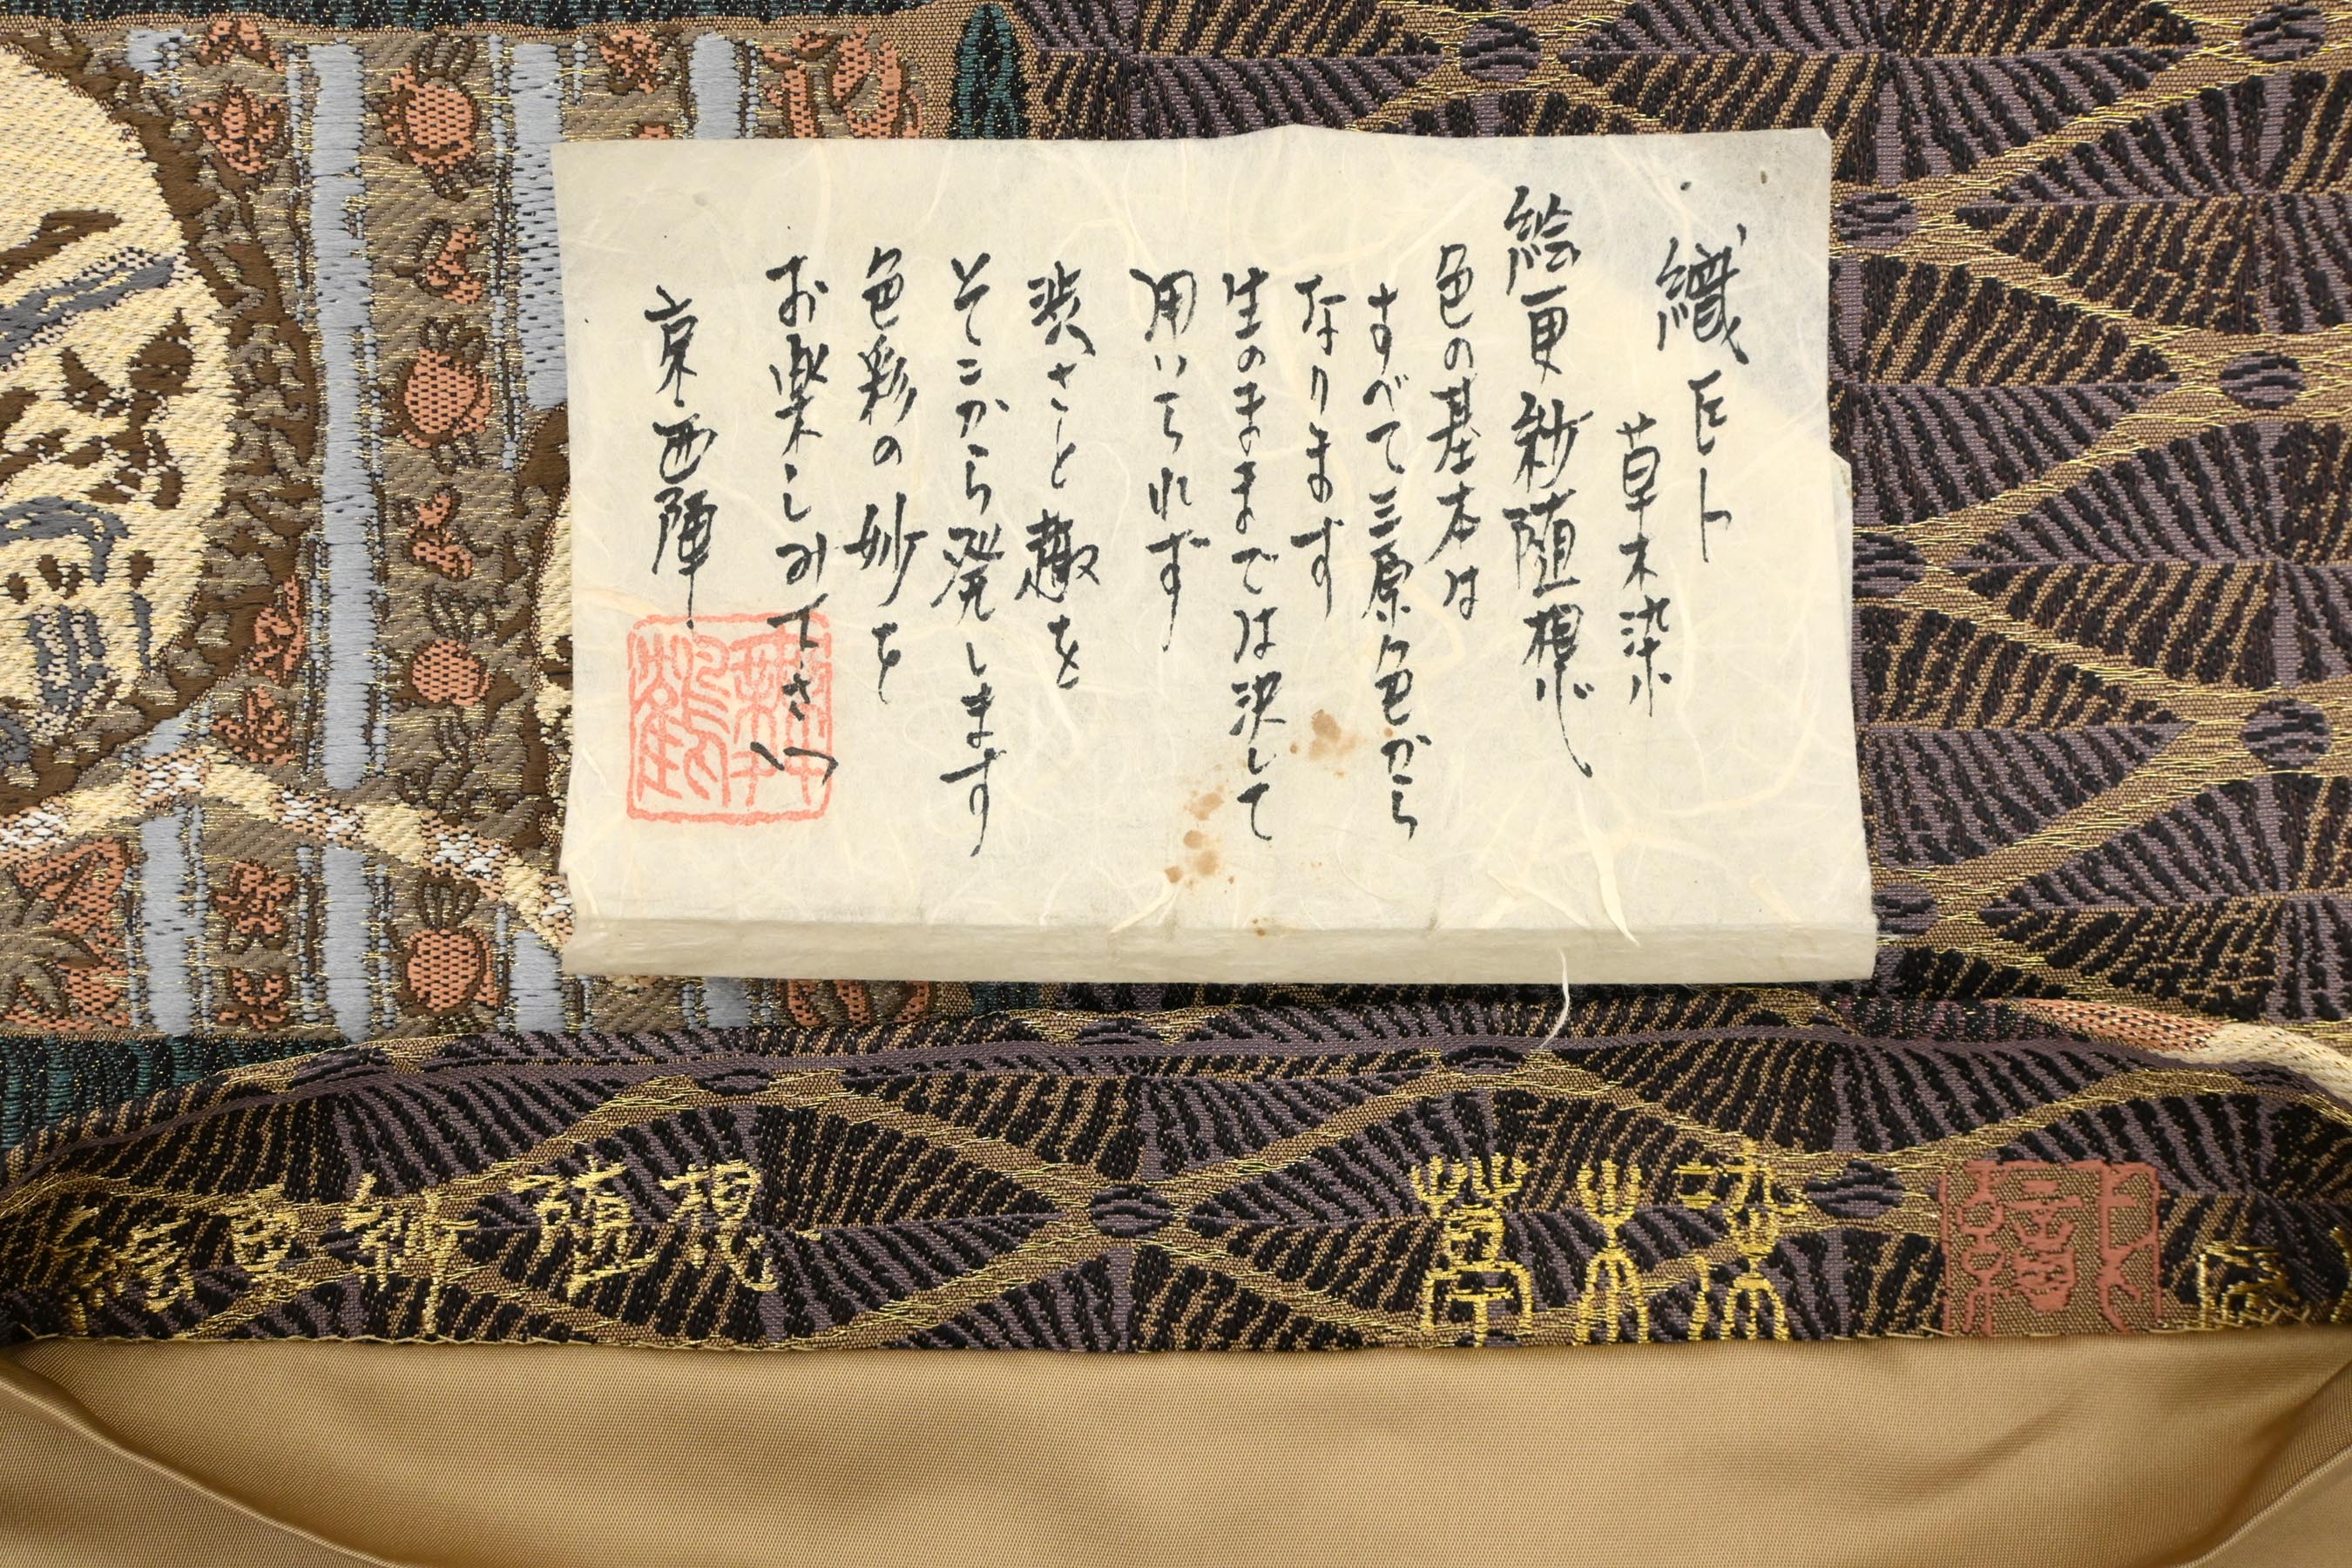 織
草木染
絵更紗随想
色の基本は
すべて三原色から
なります
生のままでは決して
用いられず
渋さと趣を
そこから発します
色彩の妙を
お楽しみ下さい
京・西陣
絵更紗随想
草木染